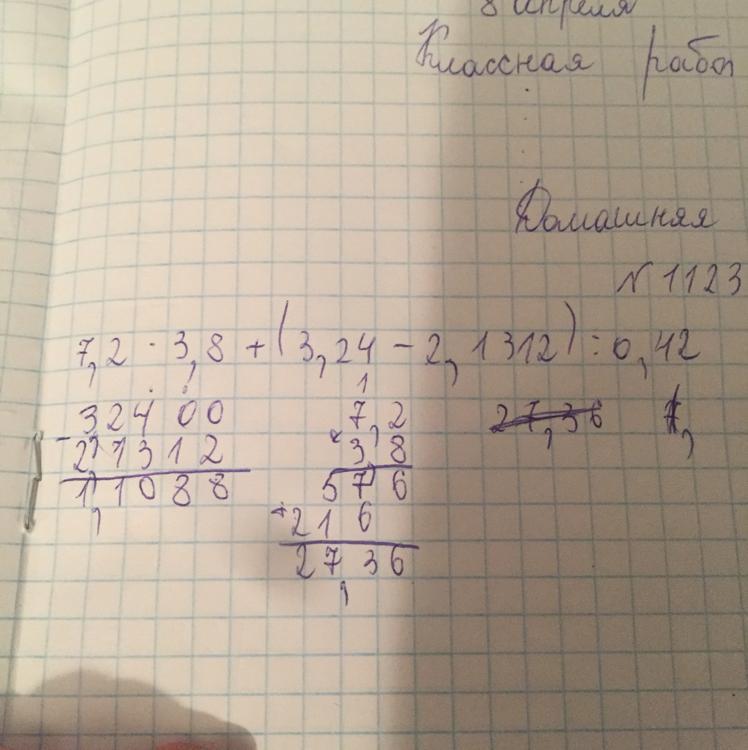 8 апреля
Классная работ
Домашняя
N 1123
7,2 · 3,8 + (3,24 - 2,1312) : 0,42
3,2400
- 2,1312
1,1088
1
7,2
× 3,8
576
+ 216
27,36
27,36